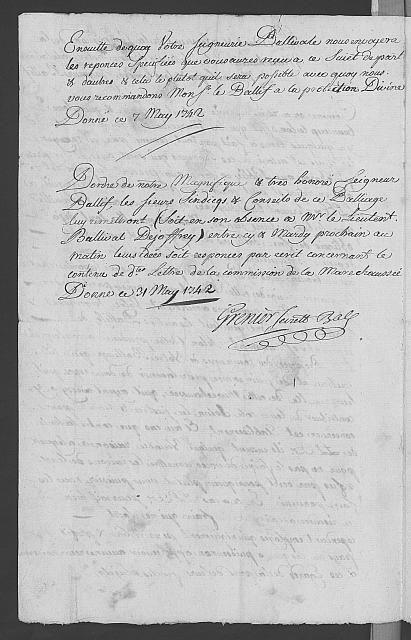 Ensuitte de quoy Votre Seigneurie Ballivale nous envoyera
les reponces Specifiées que vous aurez reçu a ce Sujet de part
& dautres & cela le plutot quil sera possible avec quoy nous
vous recommandons Mons.r le Ballif a la protection Divine
Donné ce 7 May 1742
D'ordre de notre Magnifique & tres honoré Seigneur
Ballif les sieurs Sindicqs & Conseils de ce Balliage
luy remettront (Soit en son absence a Mr le Lieutent
Ballival Dejoffrey) entre cy & Mardy prochain au
matin leurs idées soit responces par ecrit concernant le
contenu de dte Lettre de la commission de la Marechaussée
Donné ce 31 May 1742
Grenier Secrett. Ball